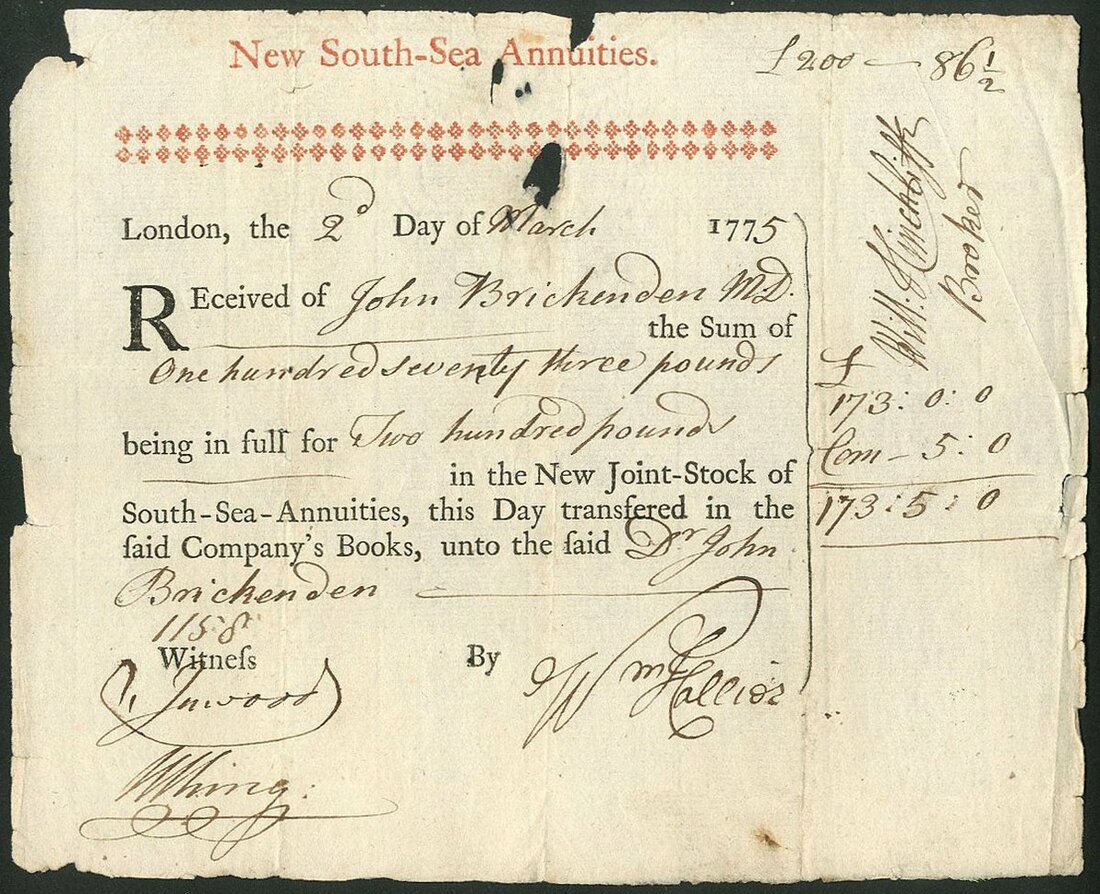 New South-Sea Annuities.
£200 — 86 1/2
London, the 2d Day of March 1775
REceived of John Brickenden MD.
the Sum of
One hundred seventy three pounds
being in full for Two hundred pounds
in the New Joint-Stock of
South-Sea-Annuities, this Day transfered in the
ſaid Company's Books, unto the ſaid Dr John
Brickenden
1158
Witneſs By Wm Collier
Inwood
Will. Hinchliff
Broker
£
173: 0: 0
Com - 5: 0
173: 5: 0